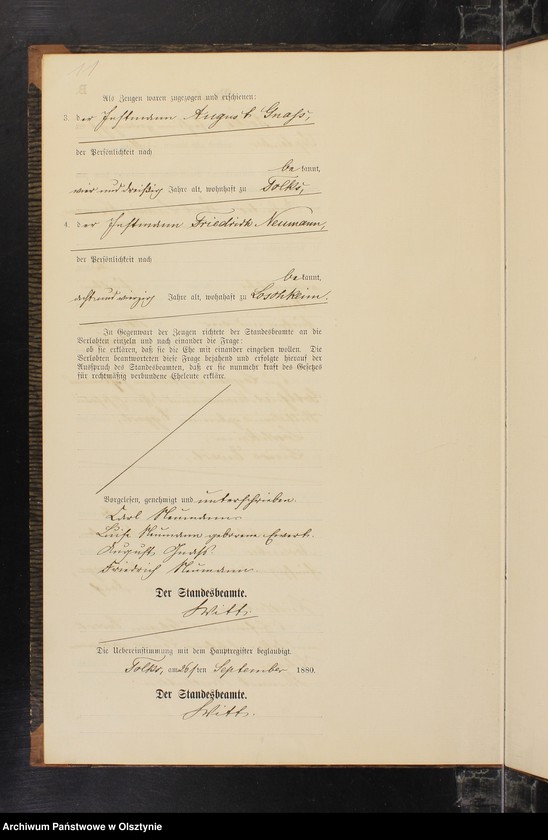 11
Als Zeugen waren zugezogen und erschienen:
3. der Instmann August Gnass,
der Persönlichkeit nach
bekannt,
vier und dreißig Jahre alt, wohnhaft zu Tolks,
4. der Instmann Friedrich Neumann,
der Persönlichkeit nach
bekannt,
acht und vierzig Jahre alt, wohnhaft zu Loschkeim.
In Gegenwart der Zeugen richtete der Standesbeamte an die
Verlobten einzeln und nach einander die Frage:
ob sie erklären, daß sie die Ehe mit einander eingehen wollen. Die
Verlobten beantworteten diese Frage bejahend und erfolgte hierauf der
Ausspruch des Standesbeamten, daß er sie nunmehr kraft des Gesetzes
für rechtmäßig verbundene Eheleute erkläre.
Vorgelesen, genehmigt und unterschrieben.
Carl Neumann
Luise Neumann geborene Ewert.
August Gnass
Friedrich Neumann.
Der Standesbeamte.
Witt.
Die Uebereinstimmung mit dem Hauptregister beglaubigt.
Tolks, am 26ten September 1880.
Der Standesbeamte.
Witt.
Archiwum Państwowe w Olsztynie